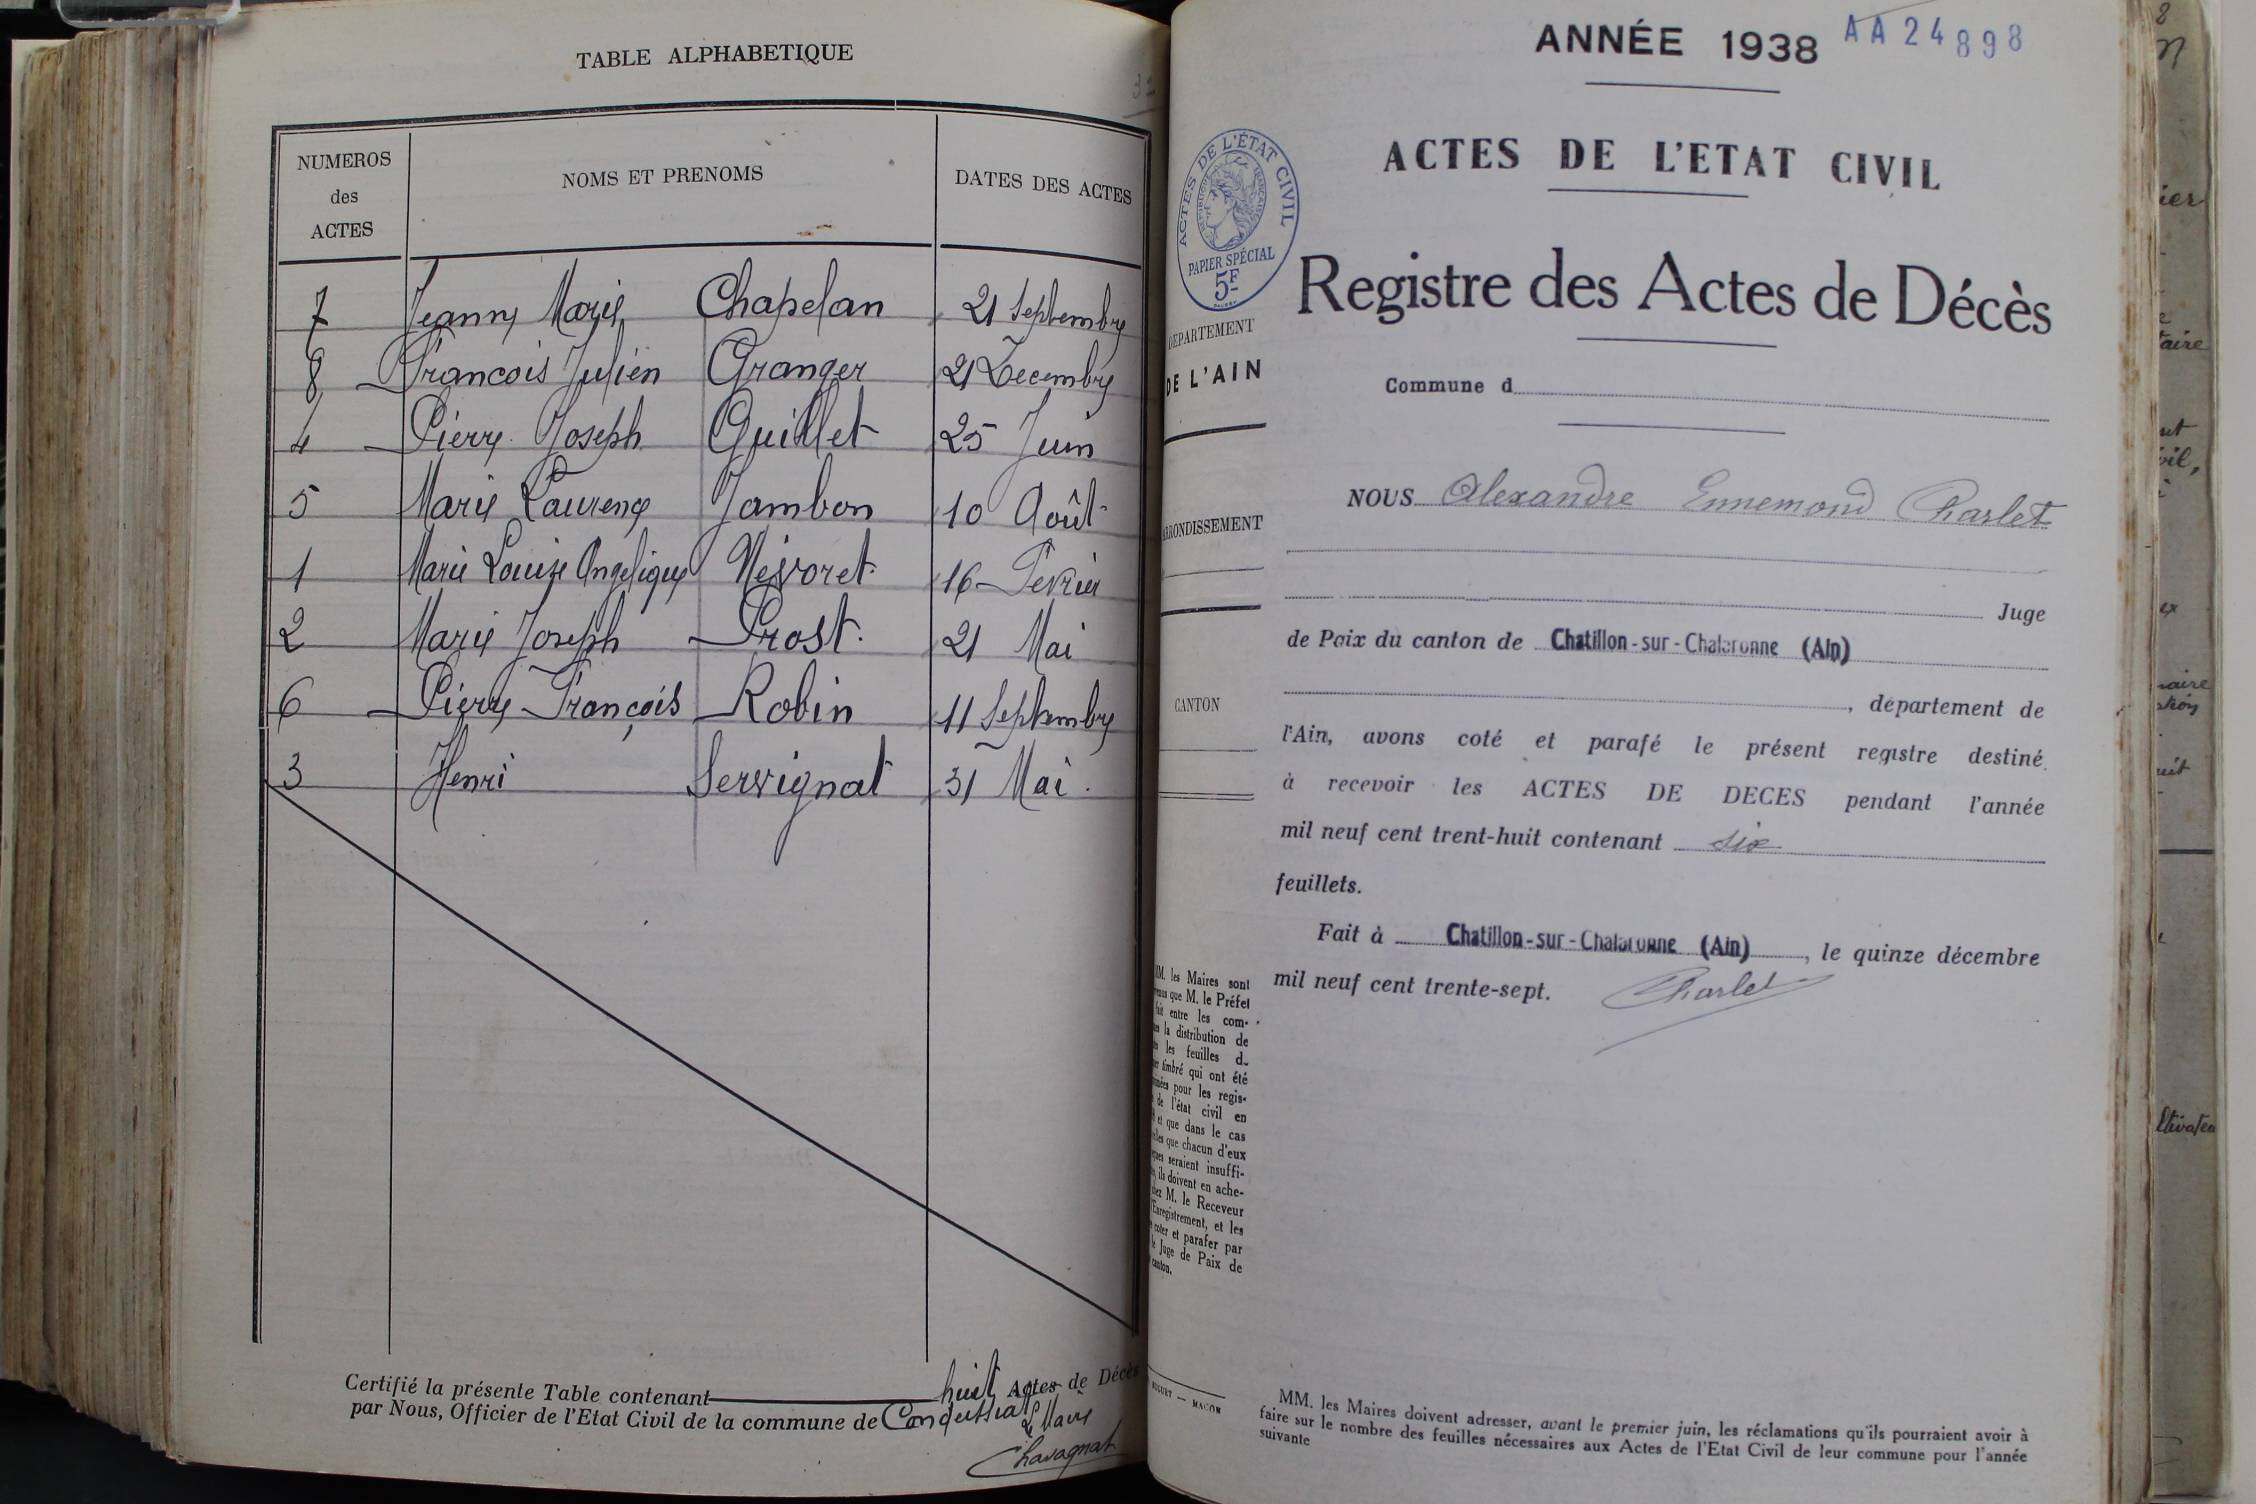 TABLE ALPHABETIQUE
NUMEROS
des
ACTES
NOMS ET PRENOMS
DATES DES ACTES
7 Jeanne Marie Chapelan 21 Septembre
8 Francois Julien Granger 21 Decembre
4 Pierre Joseph Guillet 25 Juin
5 Marie Laurence Jambon 10 Août
1 Marie Louise Angelique Névoret 16 Fevrier
2 Marie Joseph Prost. 21 Mai
6 Pierre François Robin 11 Septembre
3 Henri Servignat 31 Mai.
Certifié la présente Table contenant huit Actes de Décès
par Nous, Officier de l'Etat Civil de la commune de Condeissiat
Le Maire
Chavagnat
ANNÉE 1938 AA24898
ACTES DE L'ETAT CIVIL
ACTES DE L'ÉTAT CIVIL
RÉPUBLIQUE FRANÇAISE
PAPIER SPÉCIAL
5F
Registre des Actes de Décès
DÉPARTEMENT
DE L'AIN
Commune d
NOUS Alexandre Ennemond Charlet
ARRONDISSEMENT
Juge
de Paix du canton de Chatillon-sur-Chalaronne (Ain)
CANTON
, département de
l'Ain, avons coté et parafé le présent registre destiné
à recevoir les ACTES DE DECES pendant l'année
mil neuf cent trent-huit contenant six
feuillets.
Fait à Chatillon-sur-Chalaronne (Ain), le quinze décembre
mil neuf cent trente-sept. Charlet
MM. les Maires sont
que M. le Préfet
fait entre les com-
la distribution de
les feuilles d
timbré qui ont été
pour les regis-
de l'état civil en
et que dans le cas
que chacun d'eux
seraient insuffi-
ils doivent en ache-
M. le Receveur
l'Enregistrement, et les
coter et parafer par
le Juge de Paix de
canton.
MACON
MM. les Maires doivent adresser, avant le premier juin, les réclamations qu'ils pourraient avoir à
faire sur le nombre des feuilles nécessaires aux Actes de l'Etat Civil de leur commune pour l'année
suivante